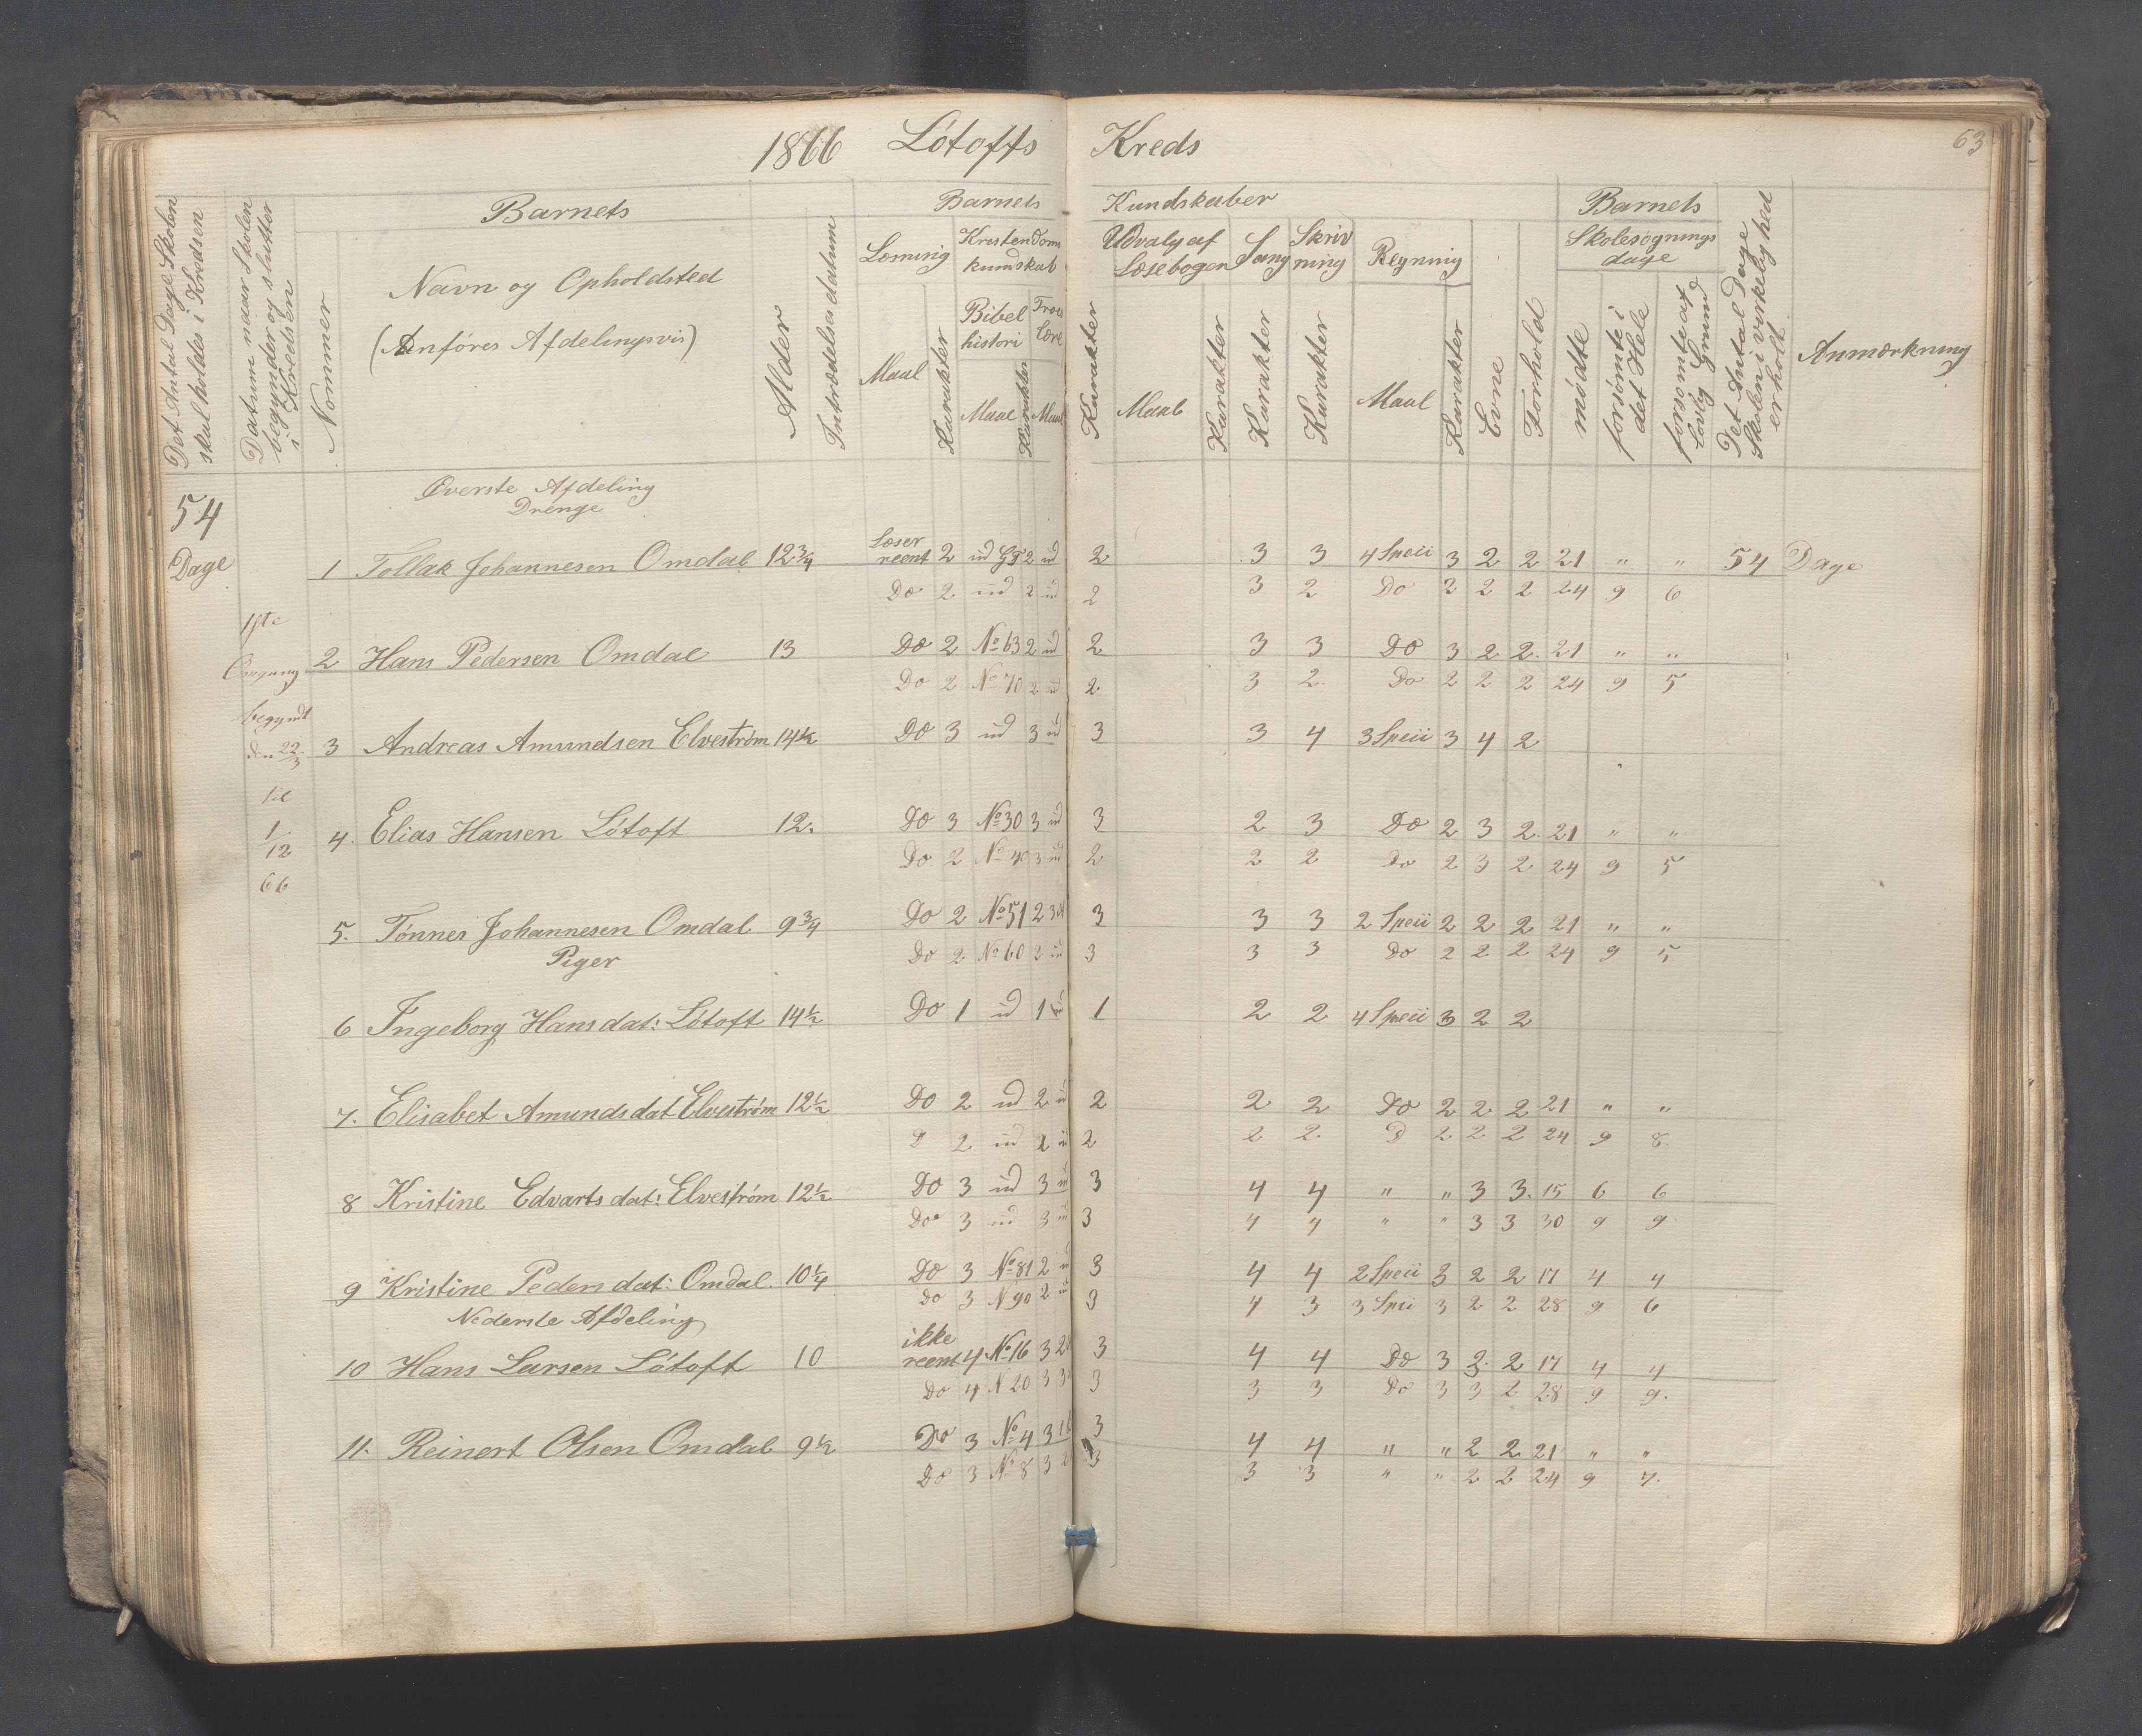 1866 Lótofts Kreds
63
Det Antal Dage Skolen skal holdes i Kredsen
Datum naar Skolen begynder og slutter i Kredsen
Nommer
Barnets
Navn og Opholdsted
(Anføres Afdelingsvis)
Alder
Intrædelses datum
Barnets Kundskaber
Læsning
Maal
Karakter
Kristendoms kundskab
Bibel histori
Maal
Karakter
Troes Lære
Maal
Karakter
Udvalg af Læsebogen
Maal
Karakter
Sang
Karakter
Skrivning
Karakter
Regning
Maal
Karakter
Evne
Forhold
Barnets
Skolesøgnings dage
mødte
forsømte i det Hele
forsømte af lovlig Grund
Det Antal Dage Skolen i virkelighed er holdt
Anmærkning
54
Dage
1ste
Omgang
begyndt
den 22/3
til
1/12
66
Øverste Afdeling
Drenge
1 Tollak Johannesen Omdal 12 3/4 Læser reent 2 ud G T 2 ud 2 3 3 4 Speii 3 2 2 21 " " 54 Dage
Do 2 ud 2 ud 2 3 2 Do 2 2 2 24 9 6
2 Hans Pedersen Omdal 13 Do 2 No 63 2 ud 2 3 3 Do 3 2 2. 21 " "
Do 2 No 70 2 ud 2 3 2. Do 2 2 2 24 9 5
3 Andreas Amundsen Elvestróm 14 1/2 Do 3 ud 3 ud 3 3 4 3 Speii 3 4 2
4. Elias Hansen Lótoft 12. Do 3 No 30 3 ud 3 2 3 Do 2 3 2. 21 " "
Do 2 No 40 3 ud 2 2 2 Do 2 3 2 24 9 5
5. Tónnes Johannesen Omdal 9 3/4 Do 2 No 51 2 3 3 3 2 Speii 2 2 2 21 " "
Piger
Do 2 No 60 2 ud 3 3 3 Do 2 2 2 24 9 5
6 Ingeborg Hansdat: Lótoft 14 1/2 Do 1 ud 1 ud 1 2 2 4 Speii 3 2 2
7. Elisabet Amundsdat Elvestróm 12 1/2 Do 2 ud 2 ud 2 2 2 Do 2 2 2 21 " "
D 2 ud 2 ud 2 2 2. D 2 2 2 24 9 8.
8 Kristine Edvartsdat: Elvestróm 12 1/2 Do 3 ud 3 ud 3 4 4 " " 3 3. 15 6 6
Do 3 ud 3 ud 3 4 4 " " 3 3 30 9 9.
9 Kristine Pedersdat: Omdal. 10 1/4 Do 3 No 81 2 ud 3 4 4 2 Speii 3 2 2 17 4 4
Do 3 N 90 2 ud 3 4 3 3 Speii 3 2 2 28 9 6
Nederste Afdeling
10 Hans Larsen Lótoft 10 ikke reent 4 No 16 3 2 3 4 4 Do 3 2. 2 17 4 4
Do 4 N 20 3 3 3 3 3 Do 3 3 2 28 9 9.
11. Reinert Olsen Omdal 9 1/2 Do 3 No 4 3 1 3 4 4 " " 2 2 21 " "
Do 3 No 8 3 2 3 3 3 " " 2 2 24 9 7.